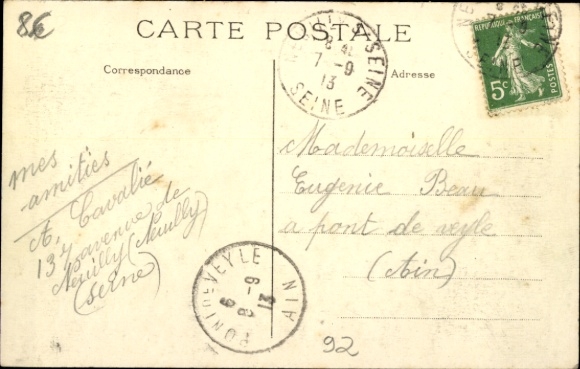 8€
CARTE POSTALE
Correspondance
Adresse
NEUILLY S SEINE
8 45
7 - 9
13
SEINE
REPUBLIQUE FRANÇAISE
5c
POSTES
Mademoiselle
Eugenie Beau
a pont de veyle
(Ain)
mes
amitiés
A. Cavalié
137 avenue de
Neuilly (Neuilly)
(seine)
PONT DE VEYLE
8 - 9
13
AIN
92